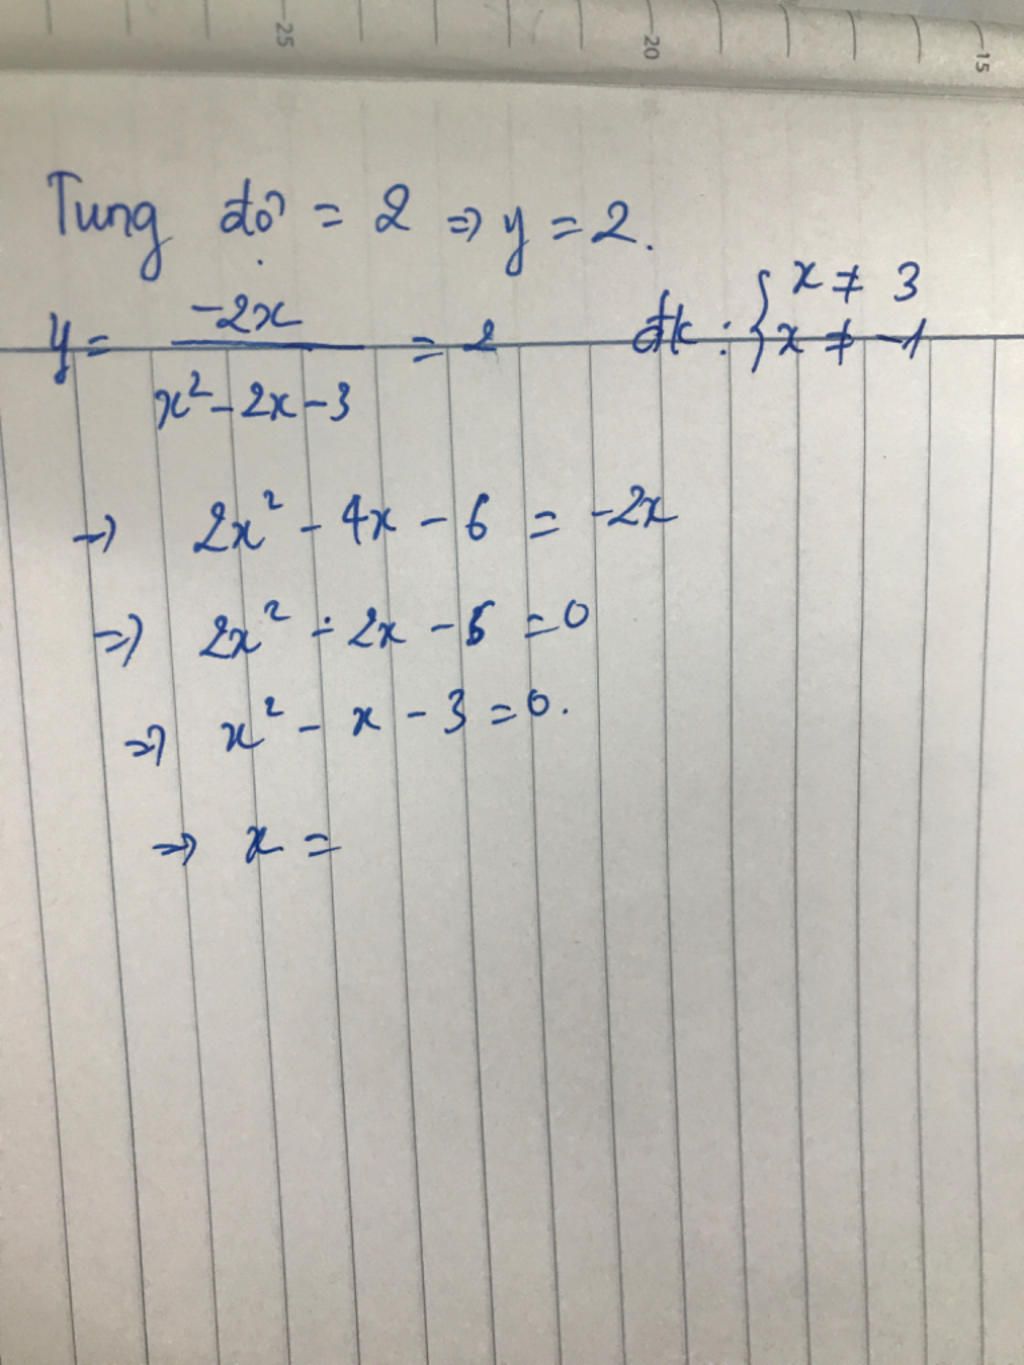 25 20 15
Tung độ = 2 => y = 2.
y = -2x / x² - 2x - 3 = 2 đk: { x ≠ 3
x ≠ -1
-> 2x² - 4x - 6 = -2x
=> 2x² - 2x - 6 = 0
=> x² - x - 3 = 0.
=> x =